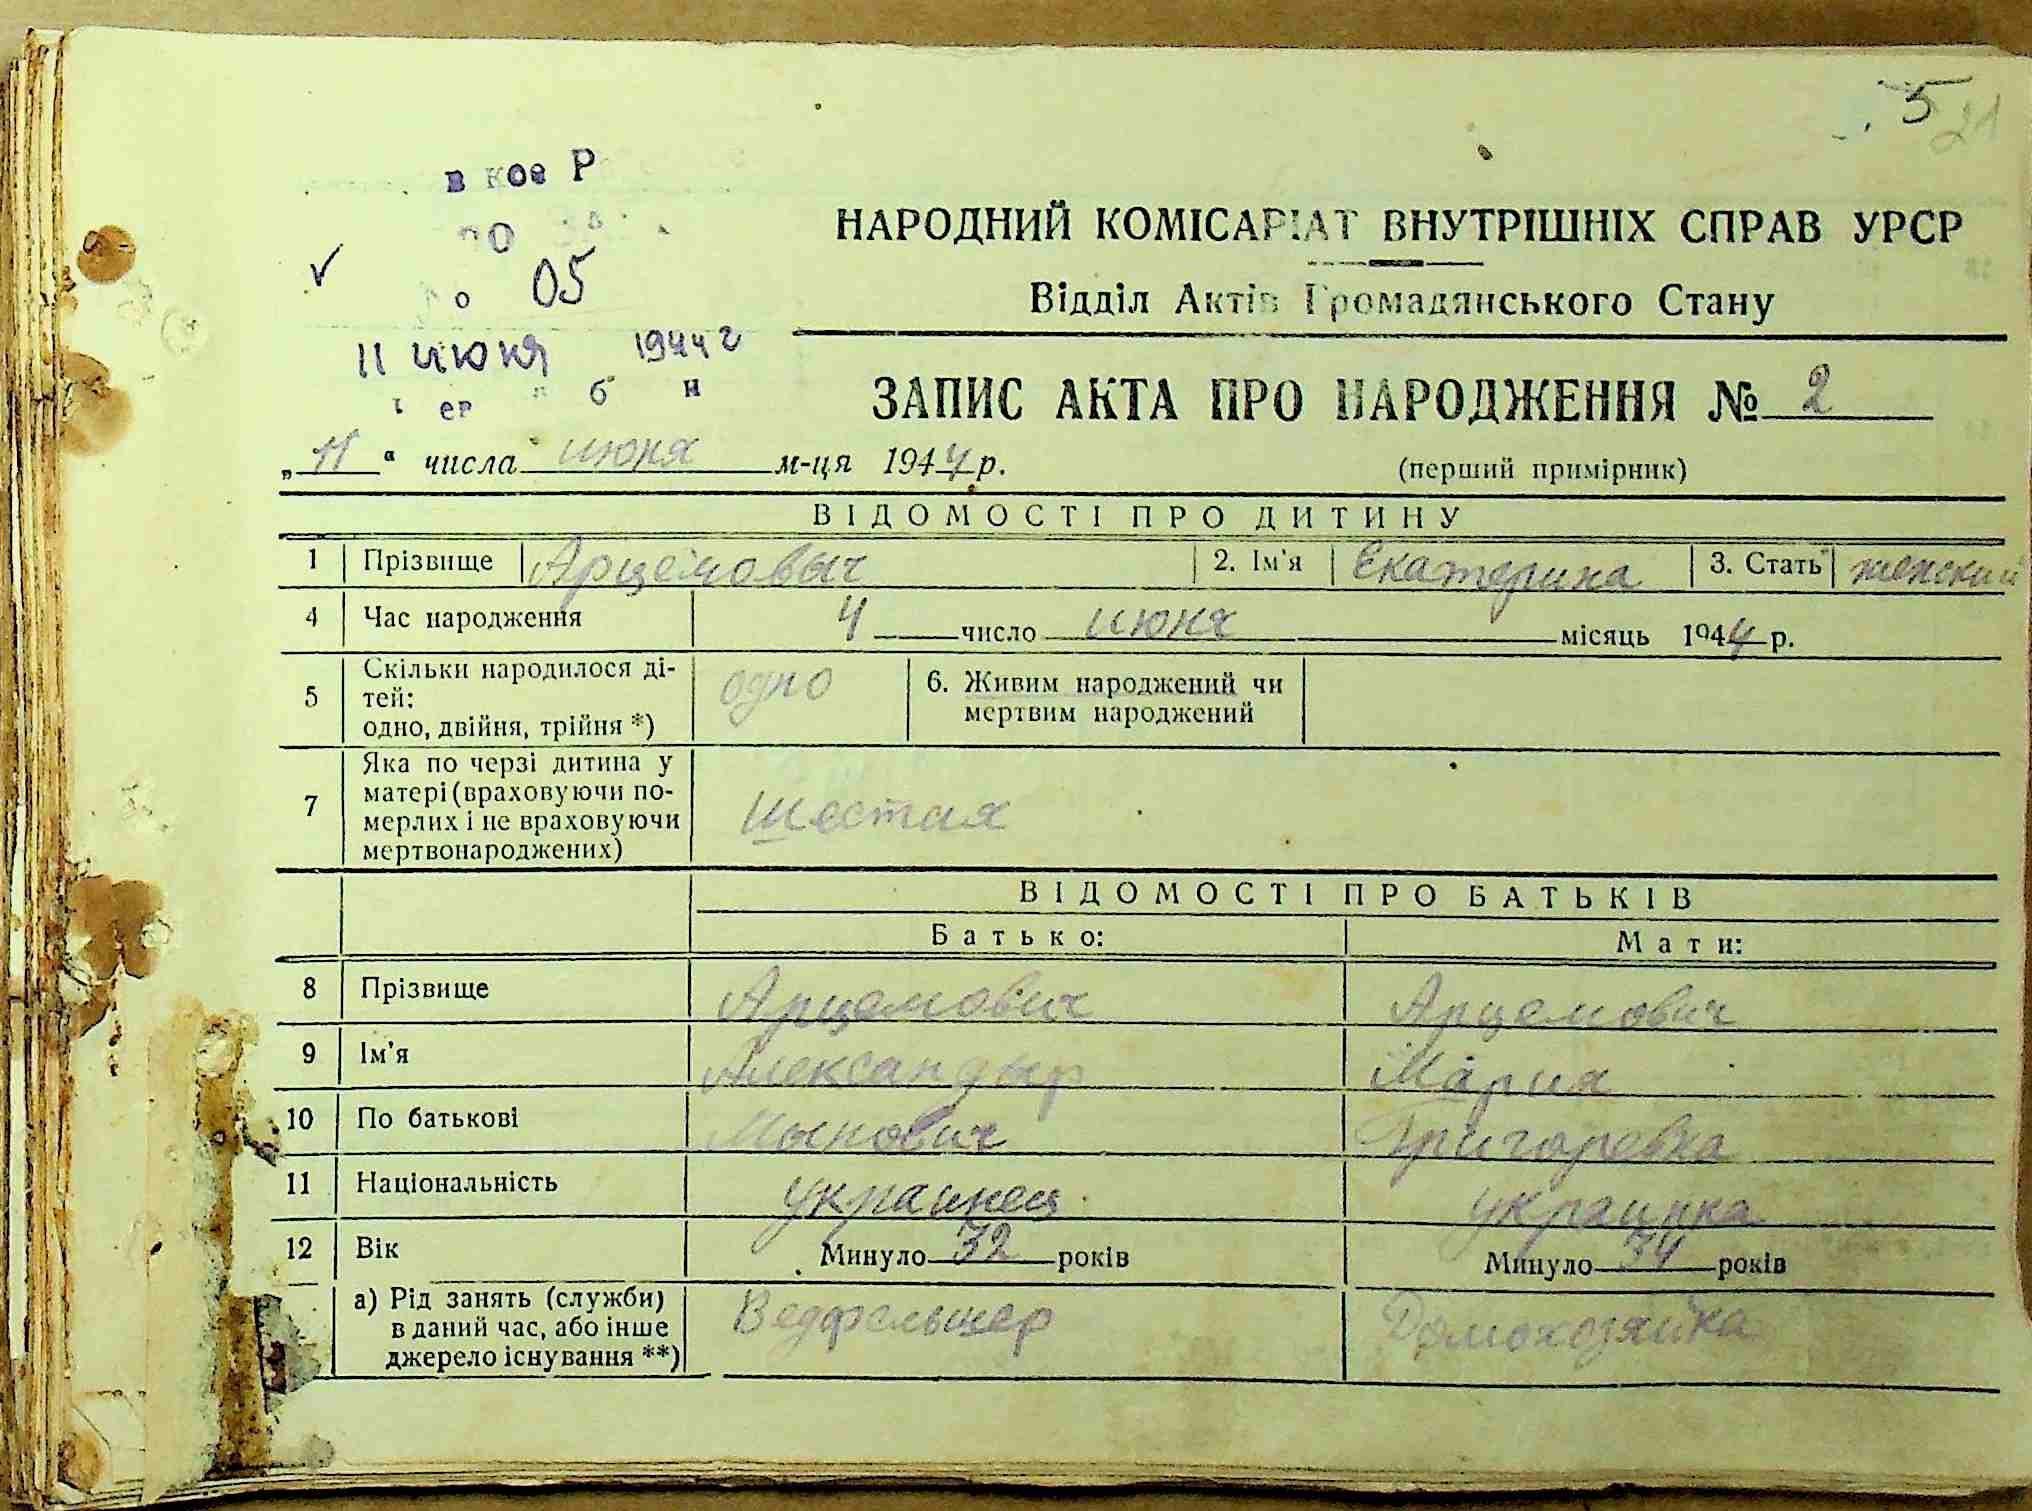 5 21
НАРОДНИЙ КОМІСАРІАТ ВНУТРІШНІХ СПРАВ УРСР
Відділ Актів Громадянського Стану
05
11 июня 1944 г
ЗАПИС АКТА ПРО НАРОДЖЕННЯ № 2
„11“ числа июня м-ця 1944 р.
(перший примірник)
ВІДОМОСТІ ПРО ДИТИНУ
1 Прізвище Арцемовыч 2. Ім'я Екатерина 3. Стать женский
4 Час народження 4 число июня місяць 1944 р.
5 Скільки народилося ді-
тей:
одно, двійня, трійня *) одно
6. Живим народжений чи
мертвим народжений
7 Яка по черзі дитина у
матері (враховуючи по-
мерлих і не враховуючи
мертвонароджених) Шестая
ВІДОМОСТІ ПРО БАТЬКІВ
Батько: Мати:
8 Прізвище Арцемович Арцемович
9 Ім'я Александыр Мария
10 По батькові Мынович Григоревна
11 Національність украинец украинка
12 Вік Минуло 32 років Минуло 34 років
а) Рід занять (служби)
в даний час, або інше
джерело існування **) Ведфельшер Домохозяйка